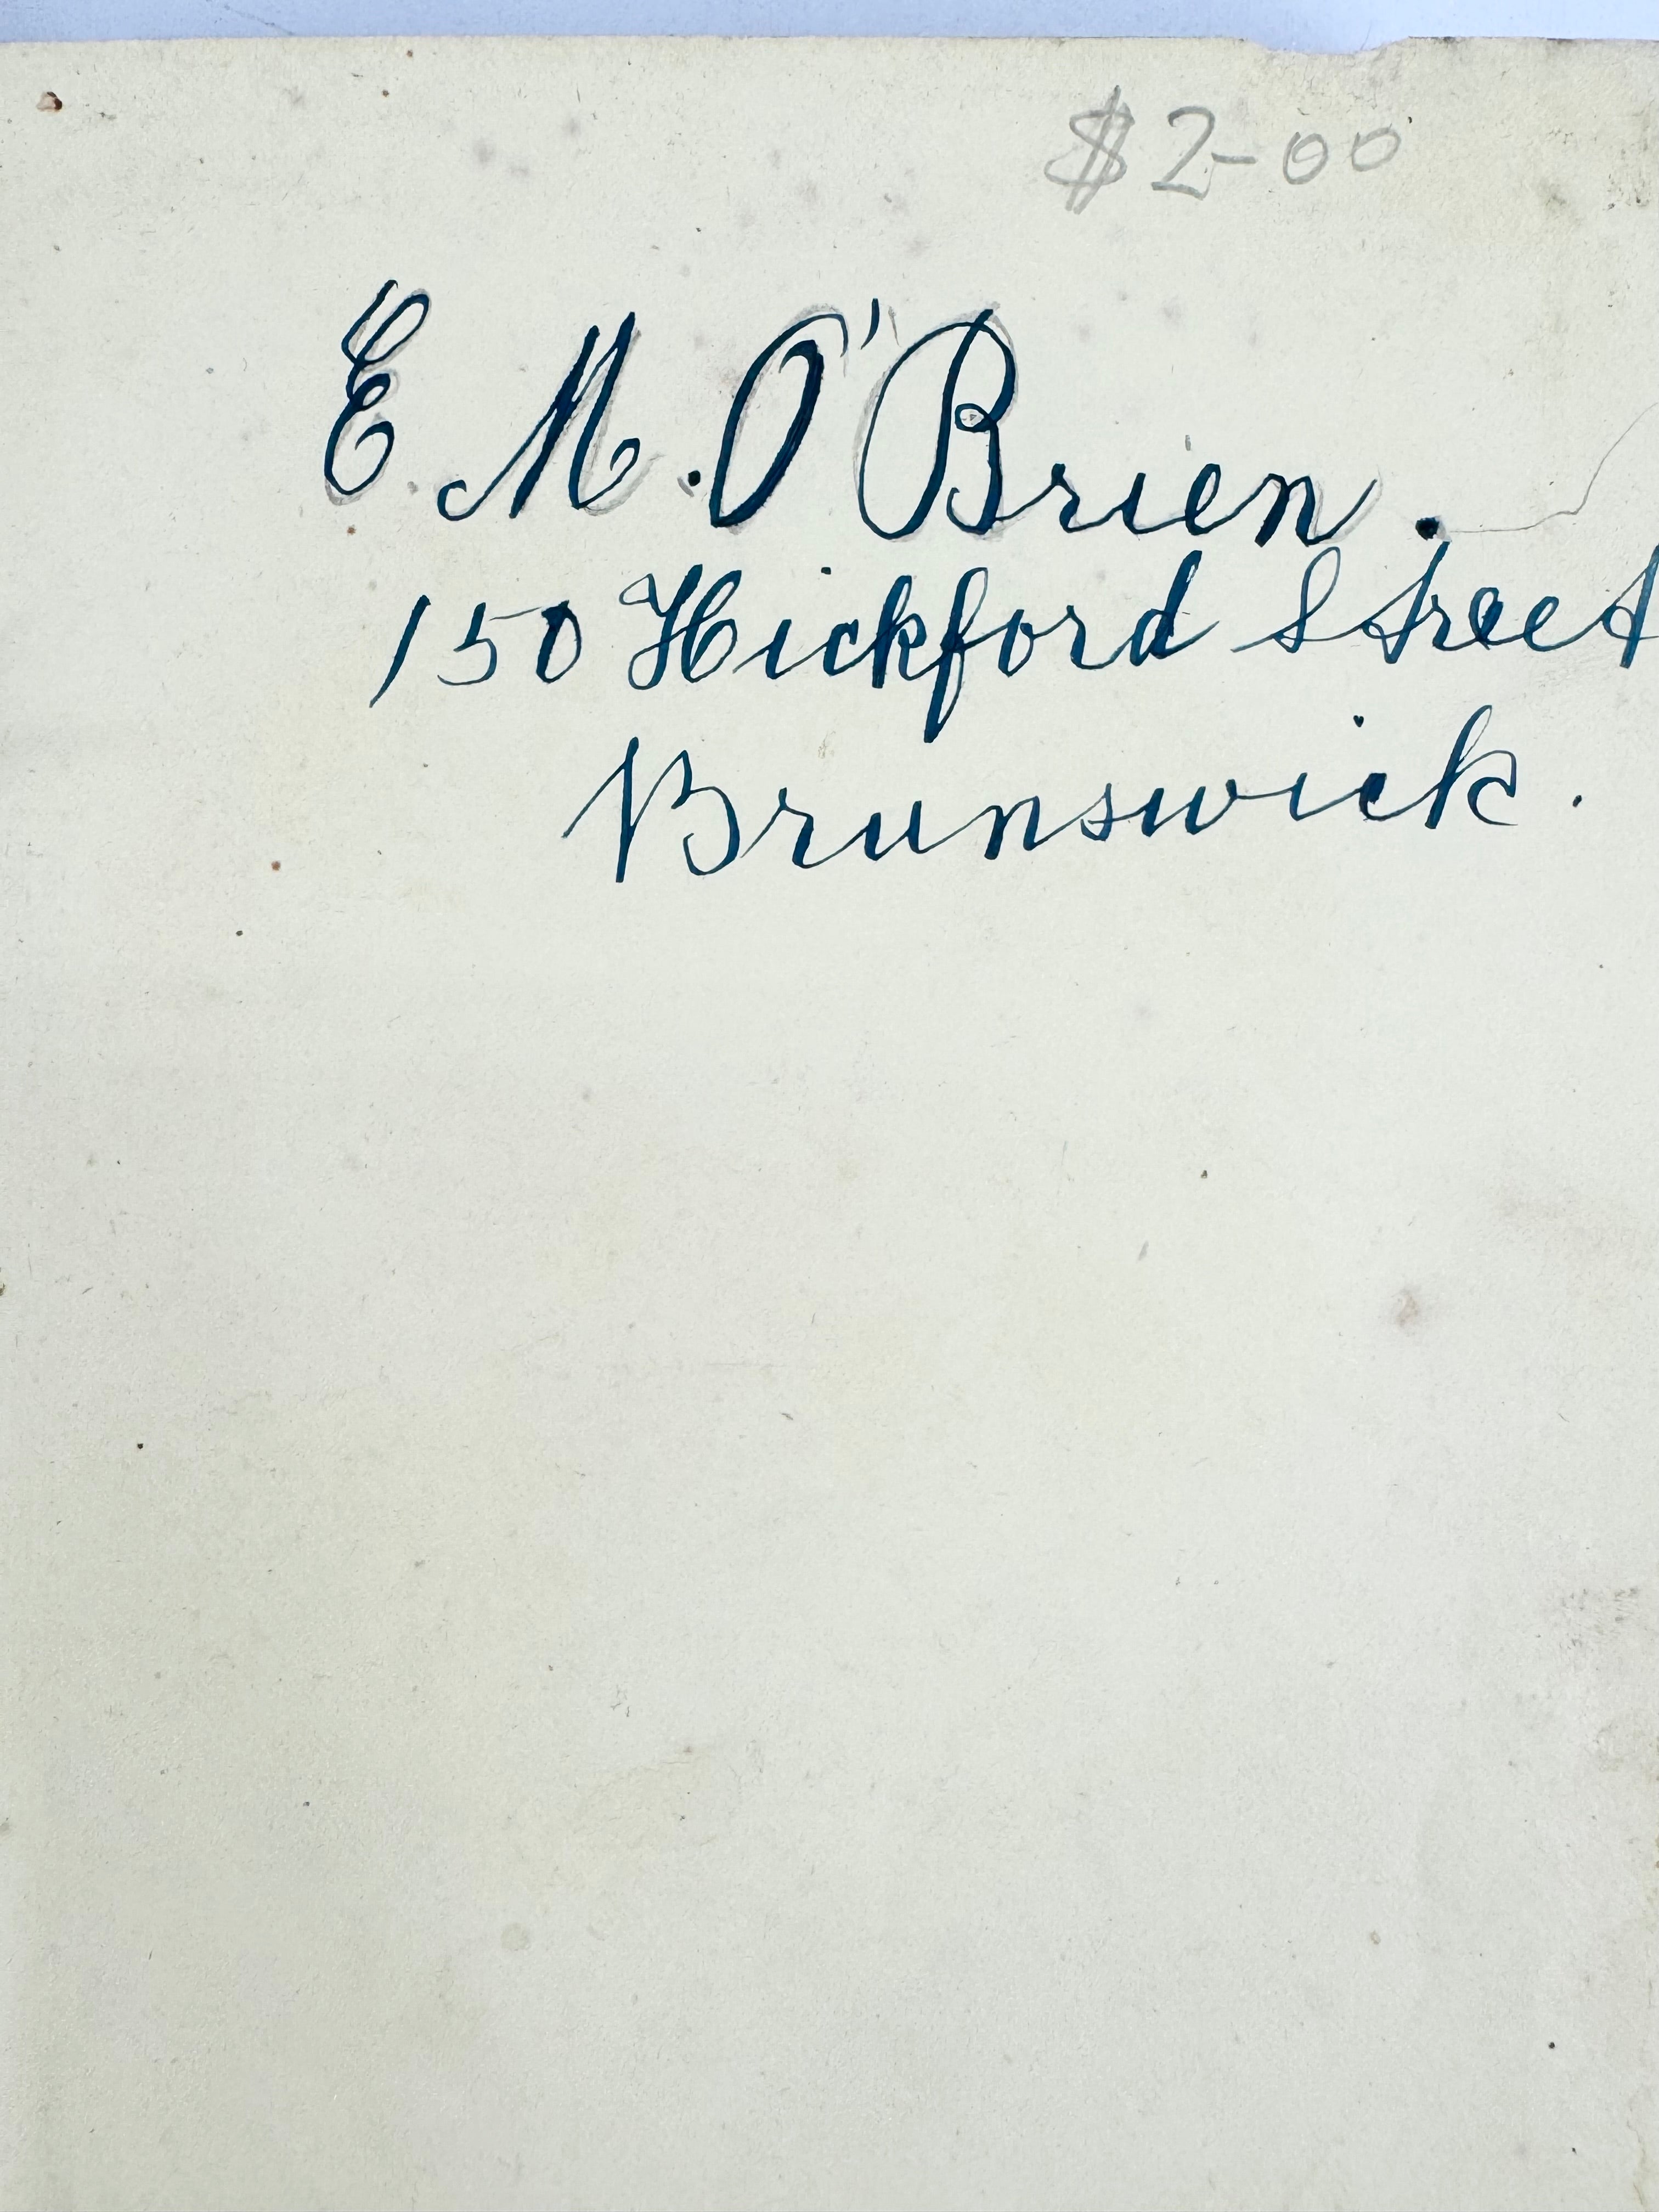 $2-00
E. M. O'Brien.
150 Hickford Street
Brunswick.